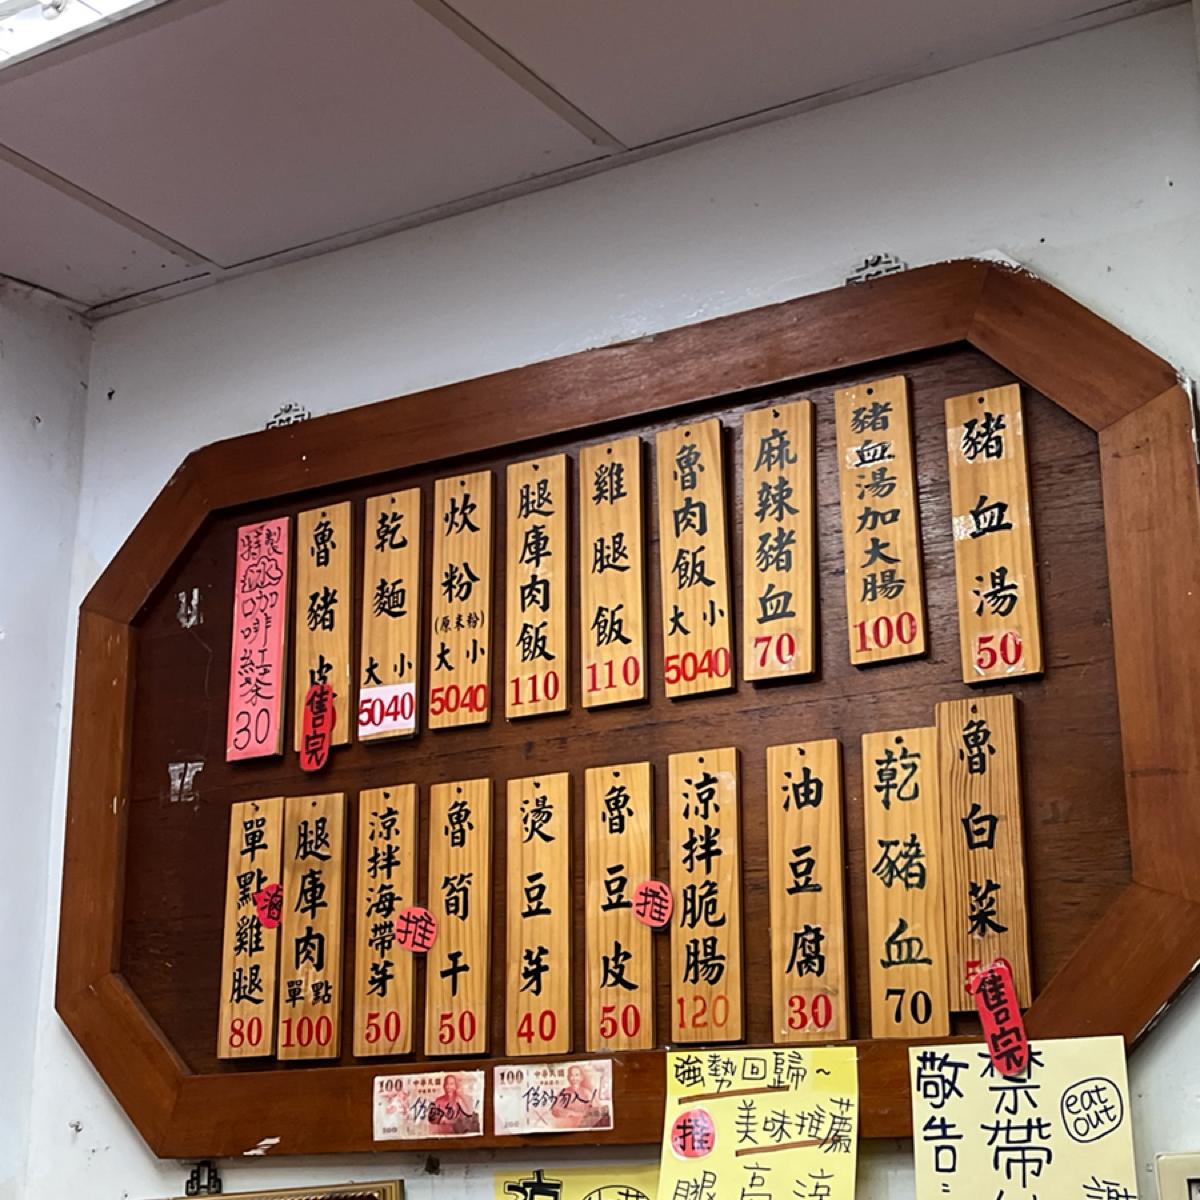 豬血湯 50
豬血湯加大腸 100
麻辣豬血 70
魯肉飯 大 小 5040
雞腿飯 110
腿庫肉飯 110
炊粉 (原米粉) 大 小 5040
乾麵 大 小 5040
魯豬皮 售完
特製 冰咖啡紅茶 30
魯白菜 售完
乾豬血 70
油豆腐 30
涼拌脆腸 120
魯豆皮 50 推
燙豆芽 40
魯筍干 50
涼拌海帶芽 50 推
腿庫肉 單點 100
單點雞腿 80
100 中華民國
偽鈔勿入!
100 中華民國
偽鈔勿入!
強勢回歸~
推 美味推薦
敬告:
禁帶
eat out